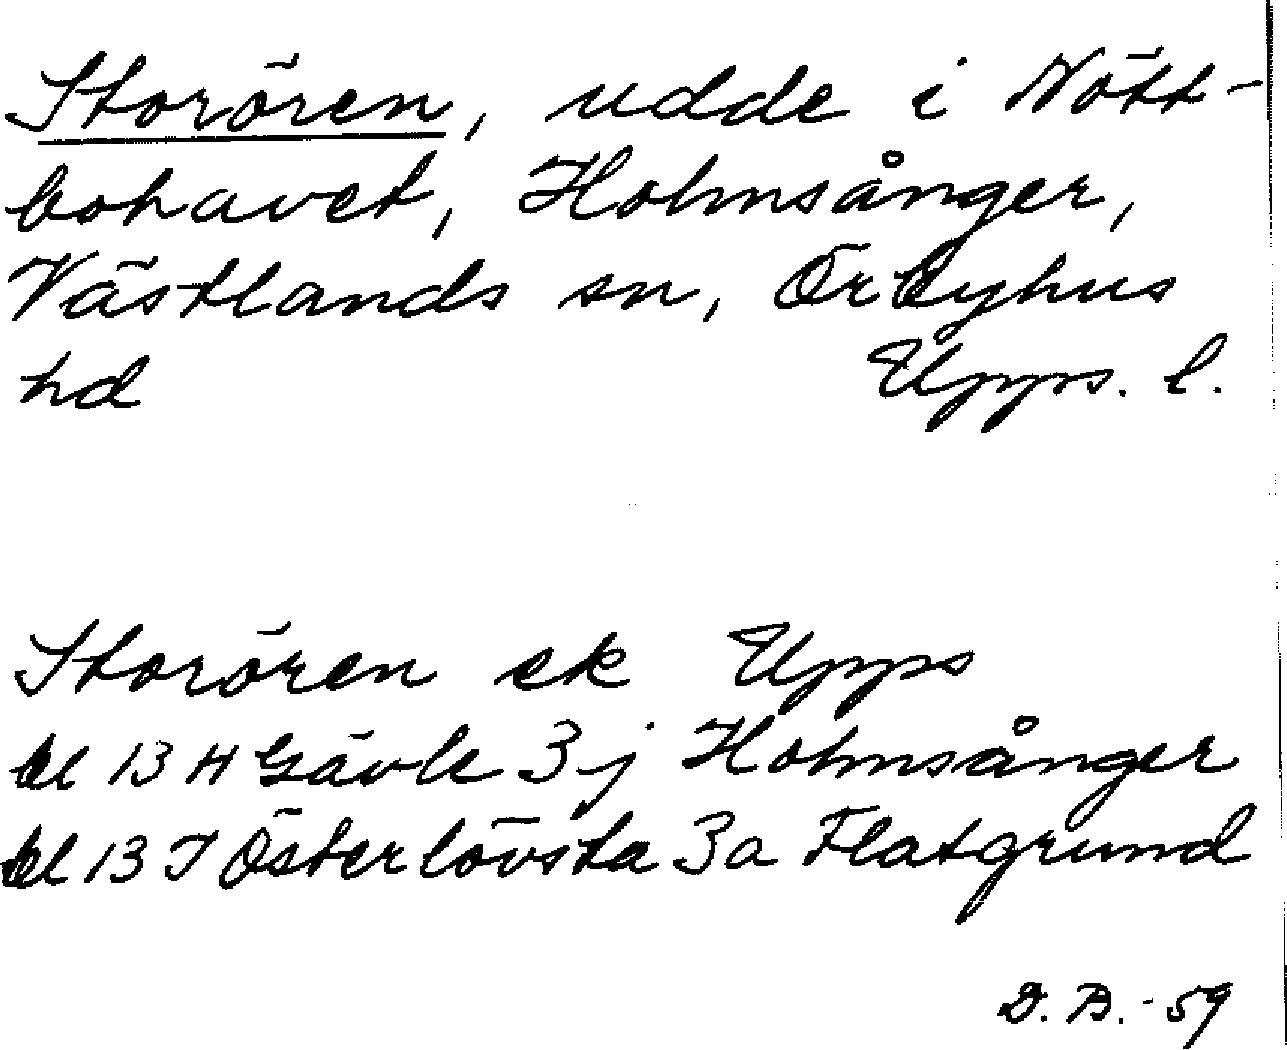 Storören, udde i Nött-
bohavet, Holmsånger,
Västlands sn, Örbyhus
hd Upps. l.
Storören ek Upps
bl 13 H Gävle 3 j Holmsånger
bl 13 I Österlövsta 3a Flatgrund
D. B. -59